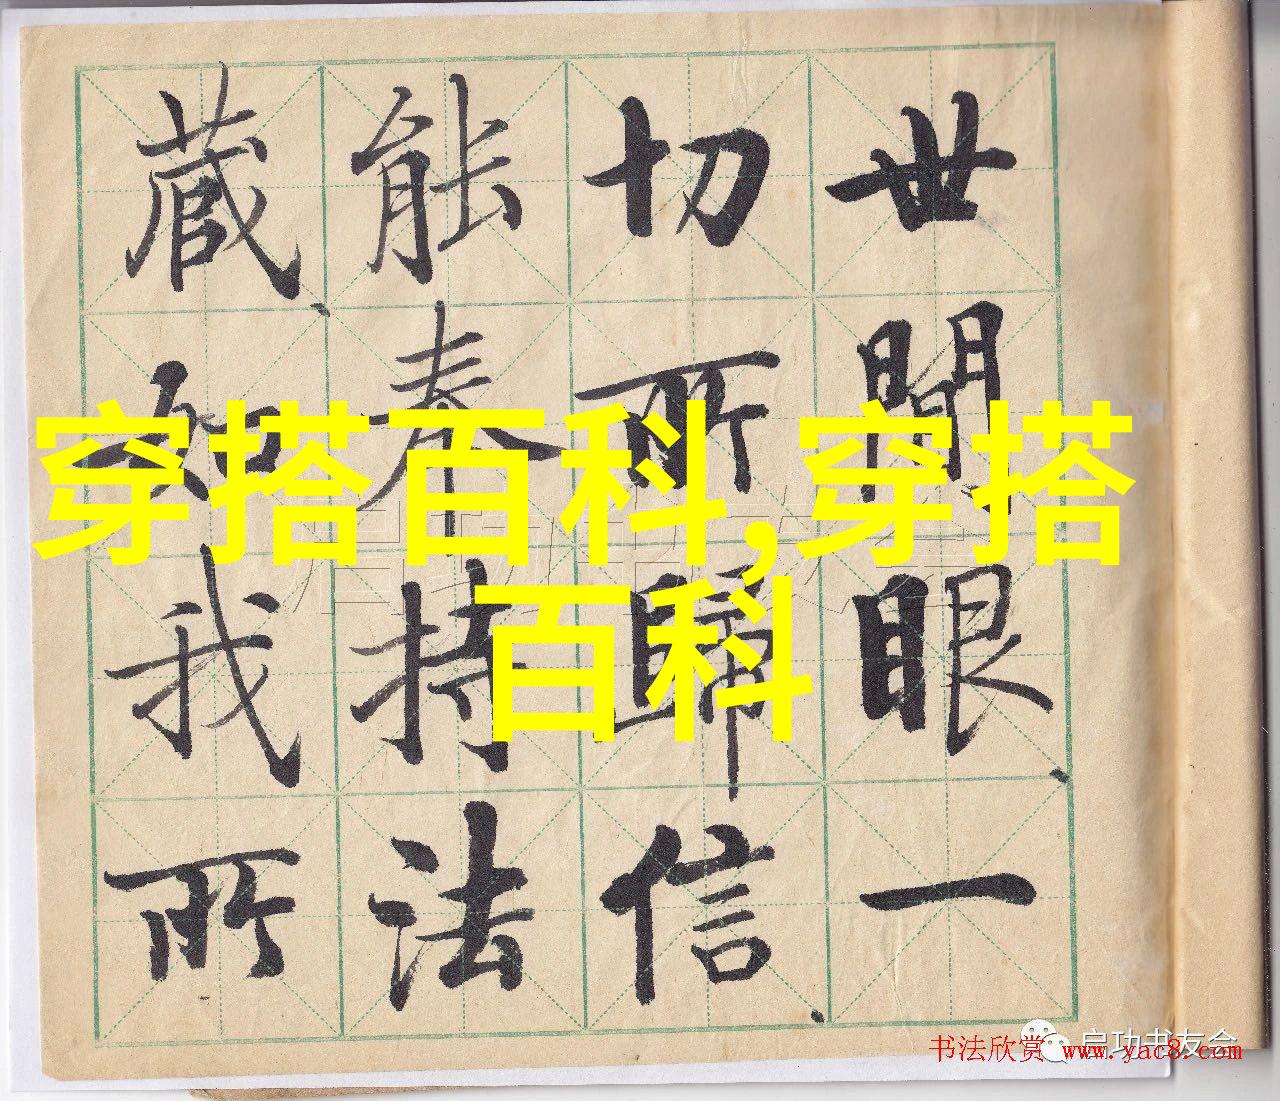 世間眼一
切所歸信
能奉持法
藏知我所
穿搭百科,穿搭
百科
启功书友会
书法欣赏 www.yac8.com